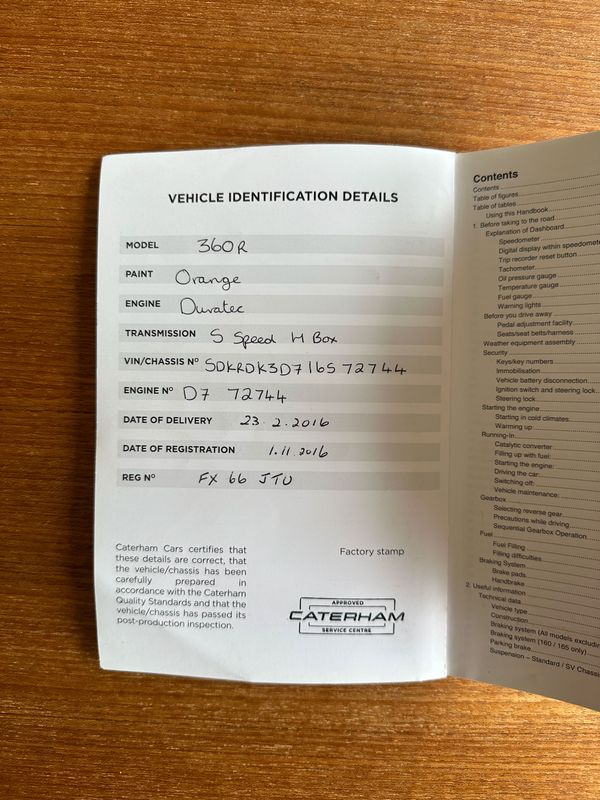 VEHICLE IDENTIFICATION DETAILS
MODEL 360R
PAINT Orange
ENGINE Duratec
TRANSMISSION 5 Speed H Box
VIN/CHASSIS Nº SDKRDK3D716S72744
ENGINE Nº D7 72744
DATE OF DELIVERY 23.2.2016
DATE OF REGISTRATION 1.11.2016
REG Nº FX 66 JTU
Caterham Cars certifies that
these details are correct, that
the vehicle/chassis has been
carefully prepared in
accordance with the Caterham
Quality Standards and that the
vehicle/chassis has passed its
post-production inspection.
Factory stamp
APPROVED
CATERHAM
SERVICE CENTRE
Contents
Contents
Table of figures
Table of tables
Using this Handbook
1. Before taking to the road
Explanation of Dashboard
Speedometer
Digital display within speedomete
Trip recorder reset button
Tachometer
Oil pressure gauge
Temperature gauge
Fuel gauge
Warning lights
Before you drive away
Pedal adjustment facility
Seats/seat belts/harness
Weather equipment assembly
Security
Keys/key numbers
Immobilisation
Vehicle battery disconnection
Ignition switch and steering lock
Steering lock
Starting the engine
Starting in cold climates
Warming up
Running-In
Catalytic converter
Filling up with fuel:
Starting the engine:
Driving the car:
Switching off:
Vehicle maintenance:
Gearbox
Selecting reverse gear
Precautions while driving
Sequential Gearbox Operation
Fuel
Fuel Filling
Filling difficulties
Braking System
Brake pads
Handbrake
2. Useful information
Technical data
Vehicle type
Construction
Braking system (All models excludin
Braking system (160 / 165 only)
Parking brake
Suspension – Standard / SV Chassi